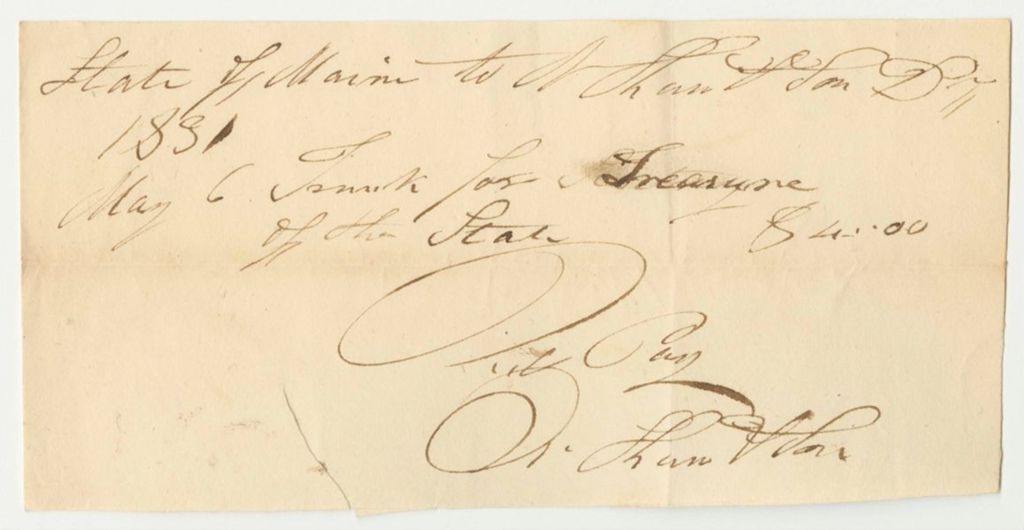 State of Maine to N Shaw & Son Dr
1831
May 6 Trunk for Treasyre
of the State $4.00
Recd Pay
N. Shaw & Son